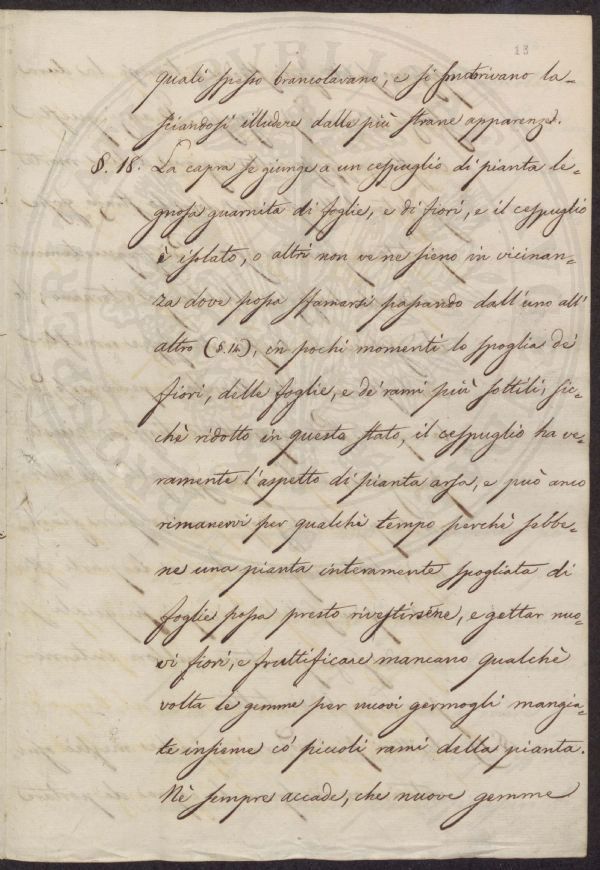 13
quali spesso brancolavano, e si smarrivano la-
sciandosi illudere dalle più strane apparenze.
§. 18. La capra se giunge a un cespuglio di pianta le-
gnosa guarnita di foglie, e di fiori, e il cespuglio
è isolato, o altri non ve ne sieno in vicinan-
za dove possa sfamarsi passando dall'uno all'
altro (§.14), in pochi momenti lo spoglia de'
fiori, delle foglie, e de' rami più sottili, sic-
chè ridotto in questo stato, il cespuglio ha ve-
ramente l'aspetto di pianta arsa, e può anco
rimanervi per qualchè tempo perchè sebbe-
ne una pianta interamente spogliata di
foglie possa presto rivestirsene, e gettar nuo-
vi fiori, e fruttificare mancano qualchè
volta le gemme per nuovi germogli mangia-
te insieme co' piccoli rami della pianta.
Nè sempre accade, che nuove gemme